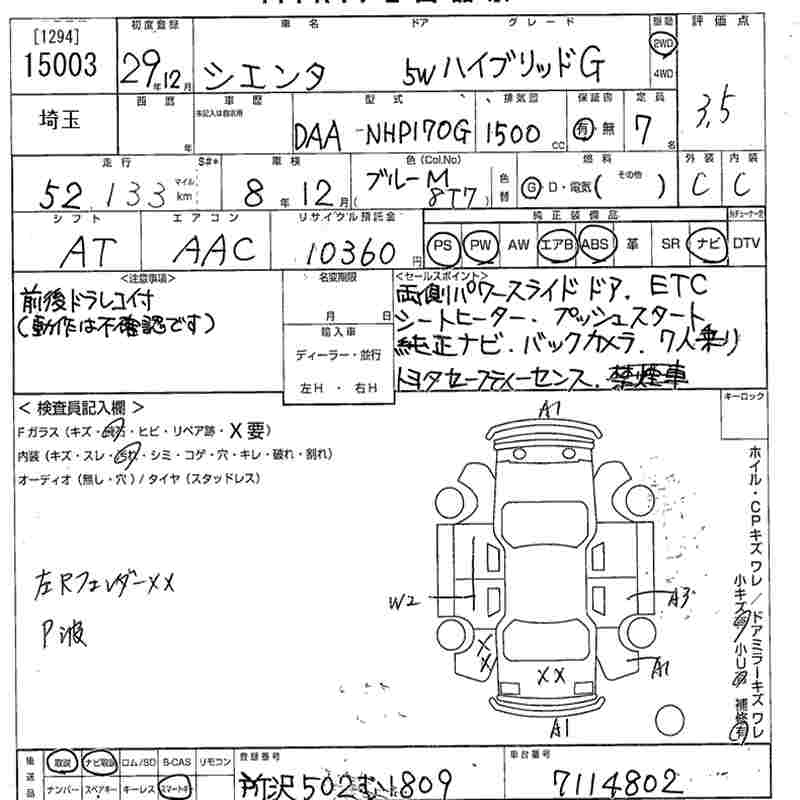 [1294]
15003
初度登録
29年12月
車名
シエンタ
ドア
5W
グレード
ハイブリッドG
駆動
2WD
4WD
評価点
3.5
埼玉
西暦
年
車歴
未記入は自家用
型式
DAA-NHP170G
排気量
1500cc
保証書
有・無
定員
7名
走行
52,133
マイル
km
S#*
車検
8年12月
色(Col.No)
ブルーM
8T7
色替
燃料
G・D・電気(その他)
外装
C
内装
C
シフト
AT
エアコン
AAC
リサイクル預託金
10360円
純正装備品
PS PW AW エアB ABS 革 SR ナビ DTV
<注意事項>
前後ドラレコ付
(動作は不確認です)
名変期限
月 日
輸入車
ディーラー・並行
左H・右H
<セールスポイント>
両側パワースライドドア. ETC
シートヒーター. プッシュスタート
純正ナビ. バックカメラ. 7人乗り
トヨタセーフティーセンス. 禁煙車
キーロック
<検査員記入欄>
Fガラス(キズ・飛石・ヒビ・リペア跡・X要)
内装(キズ・スレ・汚れ・シミ・コゲ・穴・キレ・破れ・割れ)
オーディオ(無し・穴)/タイヤ(スタッドレス)
左Rフェンダー××
P波
A1
W2
A3
A1
XX
XX
A1
ホイル・CPキズワレ/ドアミラーキズワレ
小キズ有 小U有 補修有
後送品
取説 ナビ取説 ロム/SD B-CAS リモコン
ナンバー スペアキー キーレス スマートキー
登録番号
所沢502む1809
車台番号
7114802